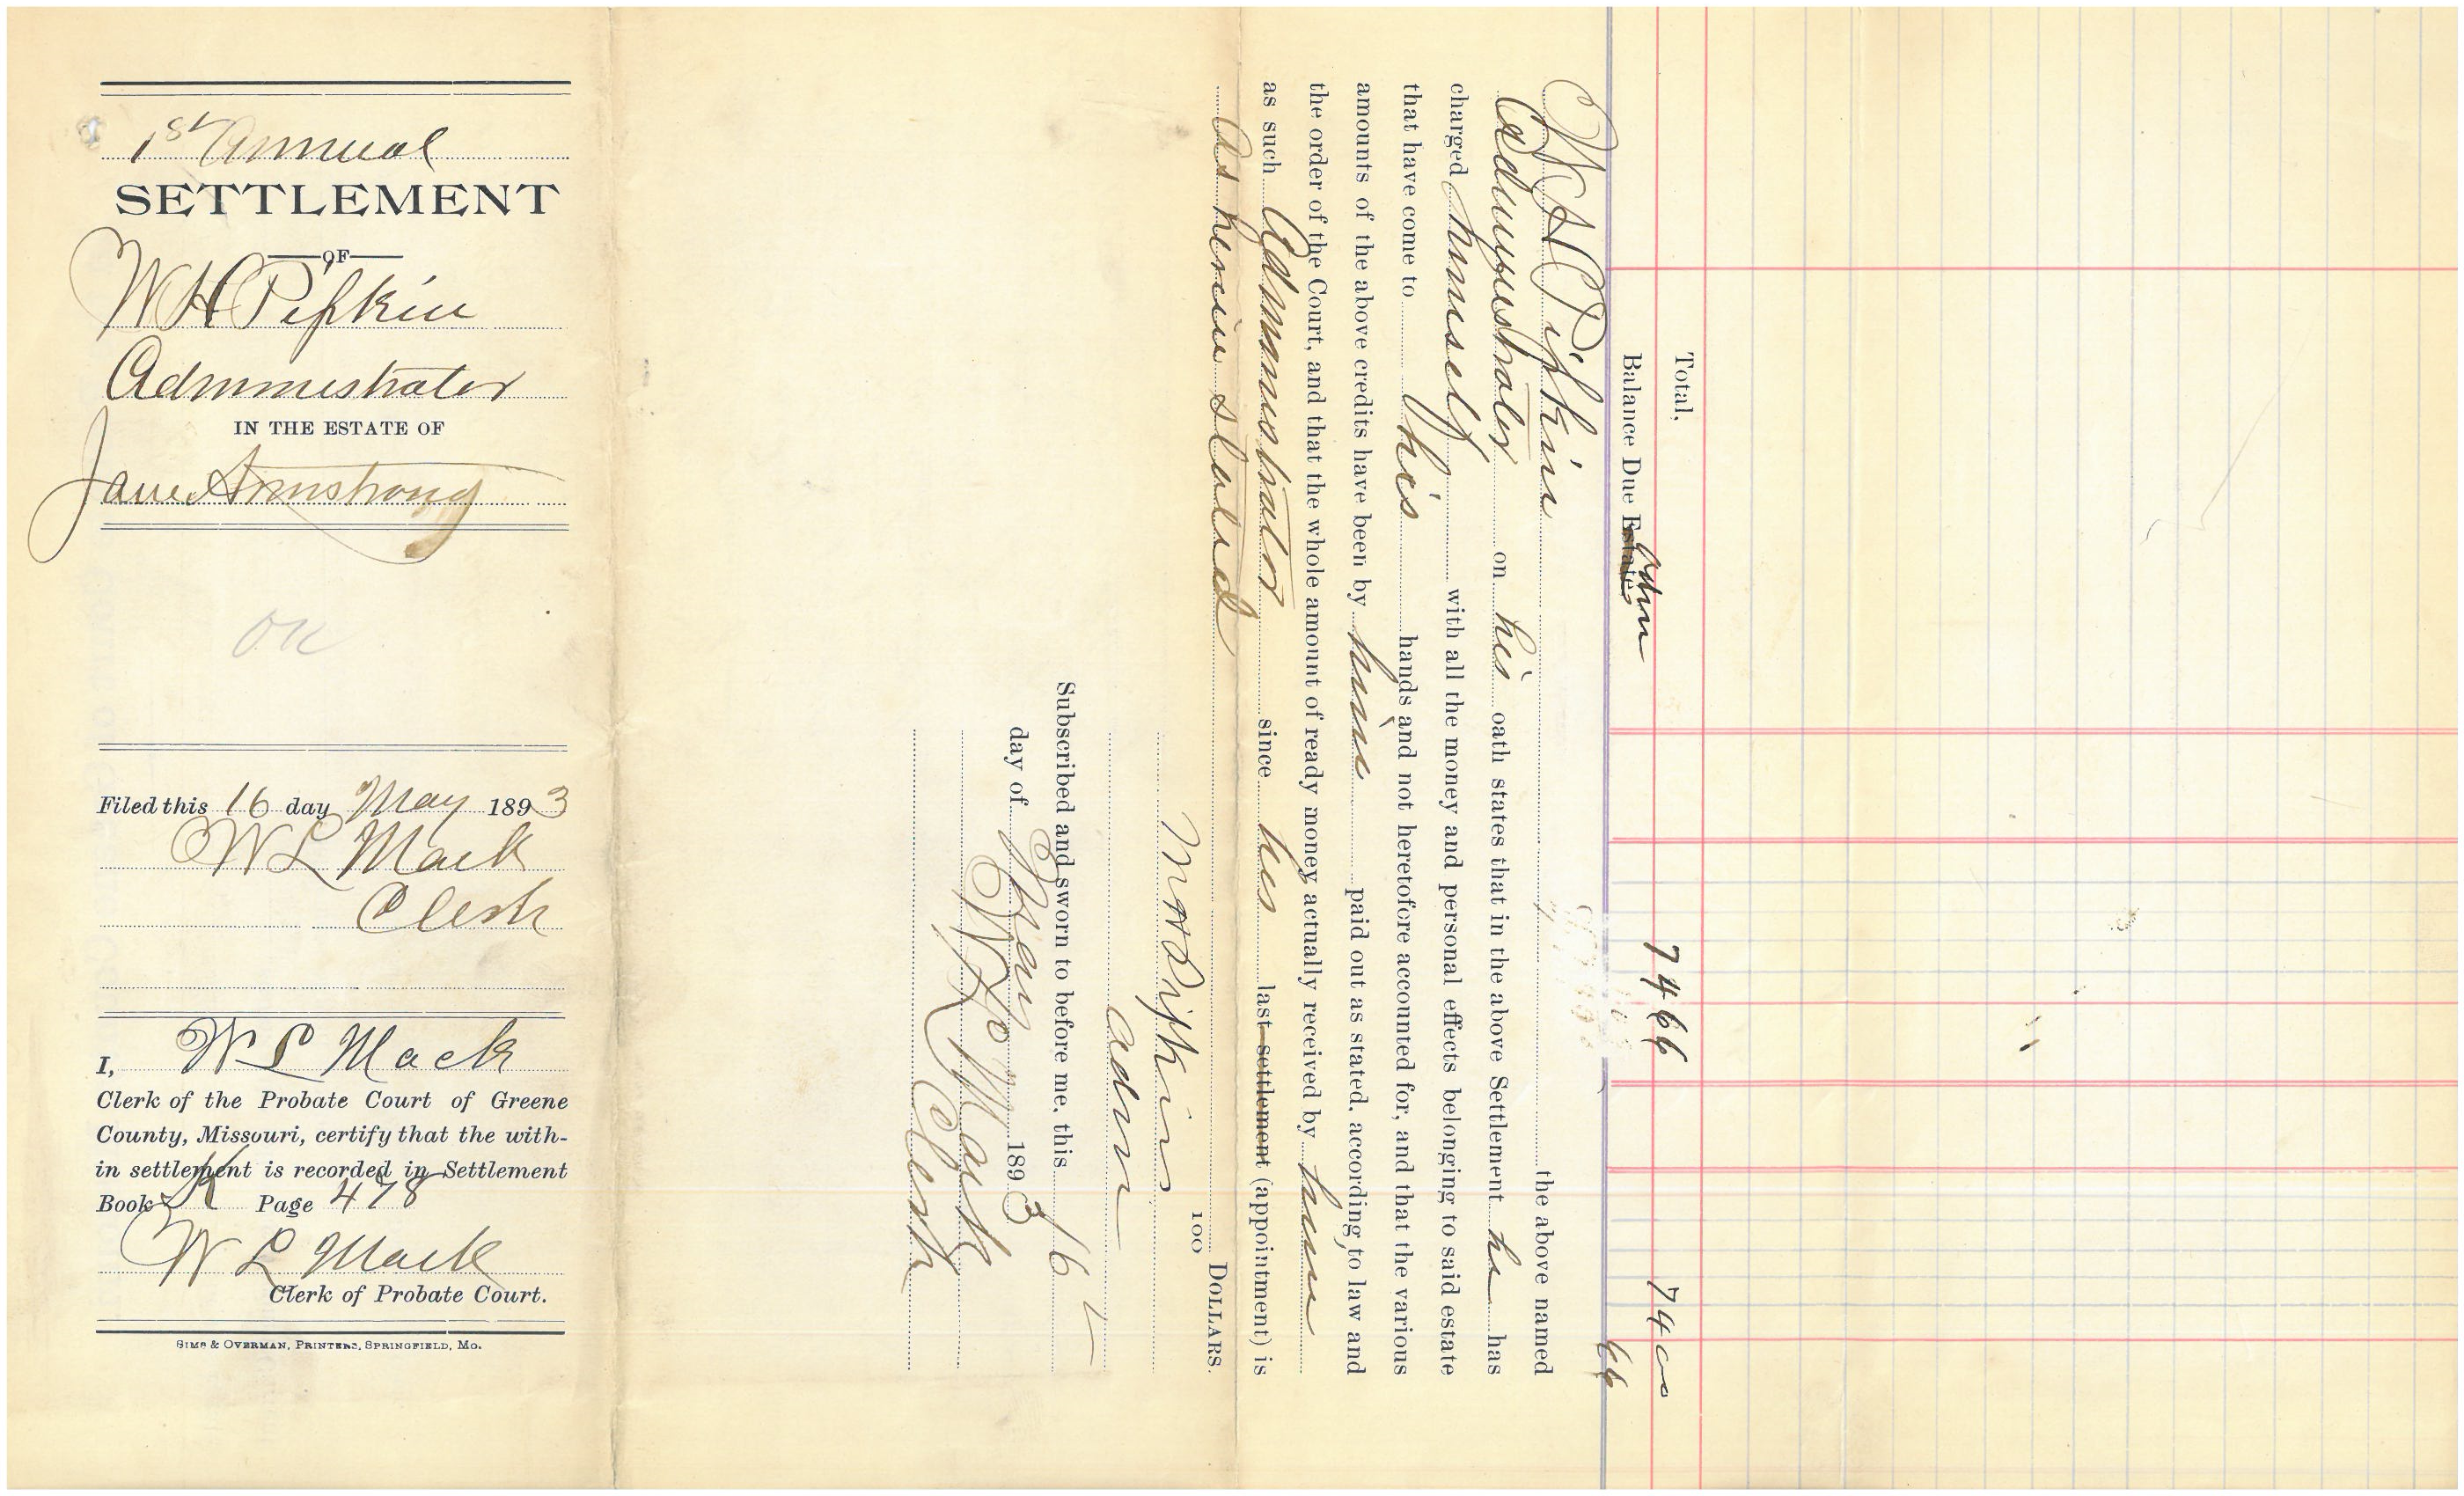 1st Annual
SETTLEMENT
OF
W H Pipkin
Administrator
IN THE ESTATE OF
Jane Armstrong
OK
Filed this 16 day May 1893
W L Mack
Clerk
I, W L Mack
Clerk of the Probate Court of Greene
County, Missouri, certify that the with-
in settlement is recorded in Settlement
Book K Page 478
W L Mack
Clerk of Probate Court.
SIMS & OVERMAN, PRINTERS, SPRINGFIELD, MO.
Total, 74 66 74 00
Balance Due Estate Admr 66
W H Pipkin the above named
Administrator on his oath states that in the above Settlement he has
charged himself with all the money and personal effects belonging to said estate
that have come to his hands and not heretofore accounted for, and that the various
amounts of the above credits have been by him paid out as stated, according to law and
the order of the Court, and that the whole amount of ready money actually received by him
as such Administrator since his last settlement (appointment) is
As herein stated
100 DOLLARS.
Pipkin
admr
Subscribed and sworn to before me, this 16
day of May 1893
W L Mack
Clerk